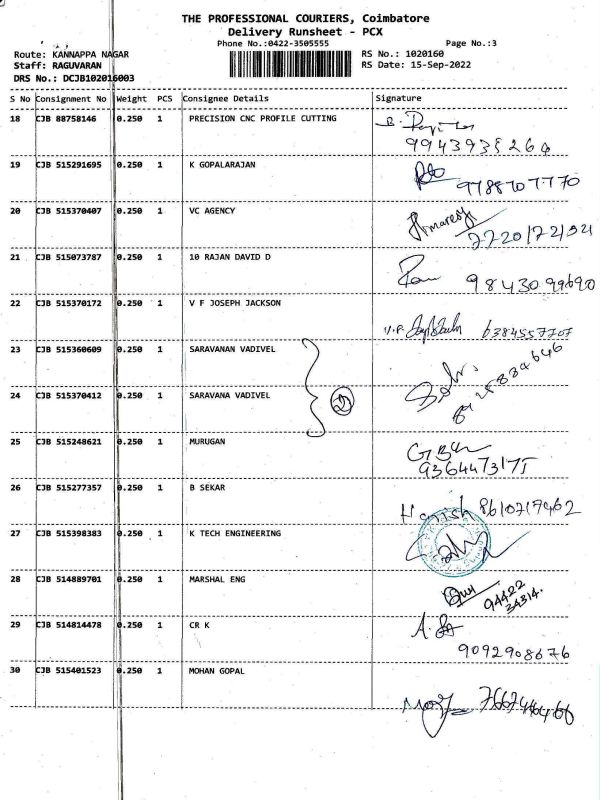 THE PROFESSIONAL COURIERS, Coimbatore
Delivery Runsheet - PCX
Phone No.:0422-3505555 Page No.:3
Route: KANNAPPA NAGAR RS No.: 1020160
Staff: RAGUVARAN RS Date: 15-Sep-2022
DRS No.: DCJB102016003
S No Consignment No Weight PCS Consignee Details Signature
18 CJB 88758146 0.250 1 PRECISION CNC PROFILE CUTTING
19 CJB 515291695 0.250 1 K GOPALARAJAN
9788707770
20 CJB 515370407 0.250 1 VC AGENCY
21 CJB 515073787 0.250 1 10 RAJAN DAVID D
22 CJB 515370172 0.250 1 V F JOSEPH JACKSON
6384557707
23 CJB 515360609 0.250 1 SARAVANAN VADIVEL
24 CJB 515370412 0.250 1 SARAVANA VADIVEL
2
25 CJB 515248621 0.250 1 MURUGAN
9364473175
26 CJB 515277357 0.250 1 B SEKAR
Harish 8610717462
27 CJB 515398383 0.250 1 K TECH ENGINEERING
28 CJB 514889701 0.250 1 MARSHAL ENG
94422
34314.
29 CJB 514814478 0.250 1 CR K
9092908676
30 CJB 515401523 0.250 1 MOHAN GOPAL